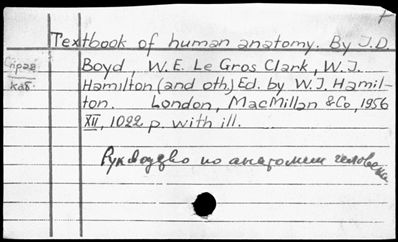 Textbook of human anatomy. By J.D.
Справ
каб.
Boyd, W.E. Le Gros Clark, W.J.
Hamilton (and oth.) Ed. by W.J. Hamil-
ton. London, MacMillan & Co, 1956
XII, 1022 p. with ill.
Руководство по анатомии человека